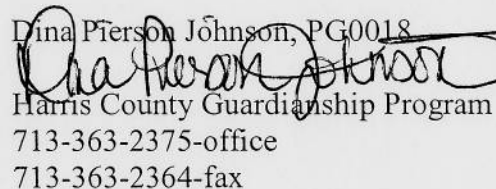 Dina Pierson Johnson, PG0018
Dina Pierson Johnson
Harris County Guardianship Program
713-363-2375-office
713-363-2364-fax